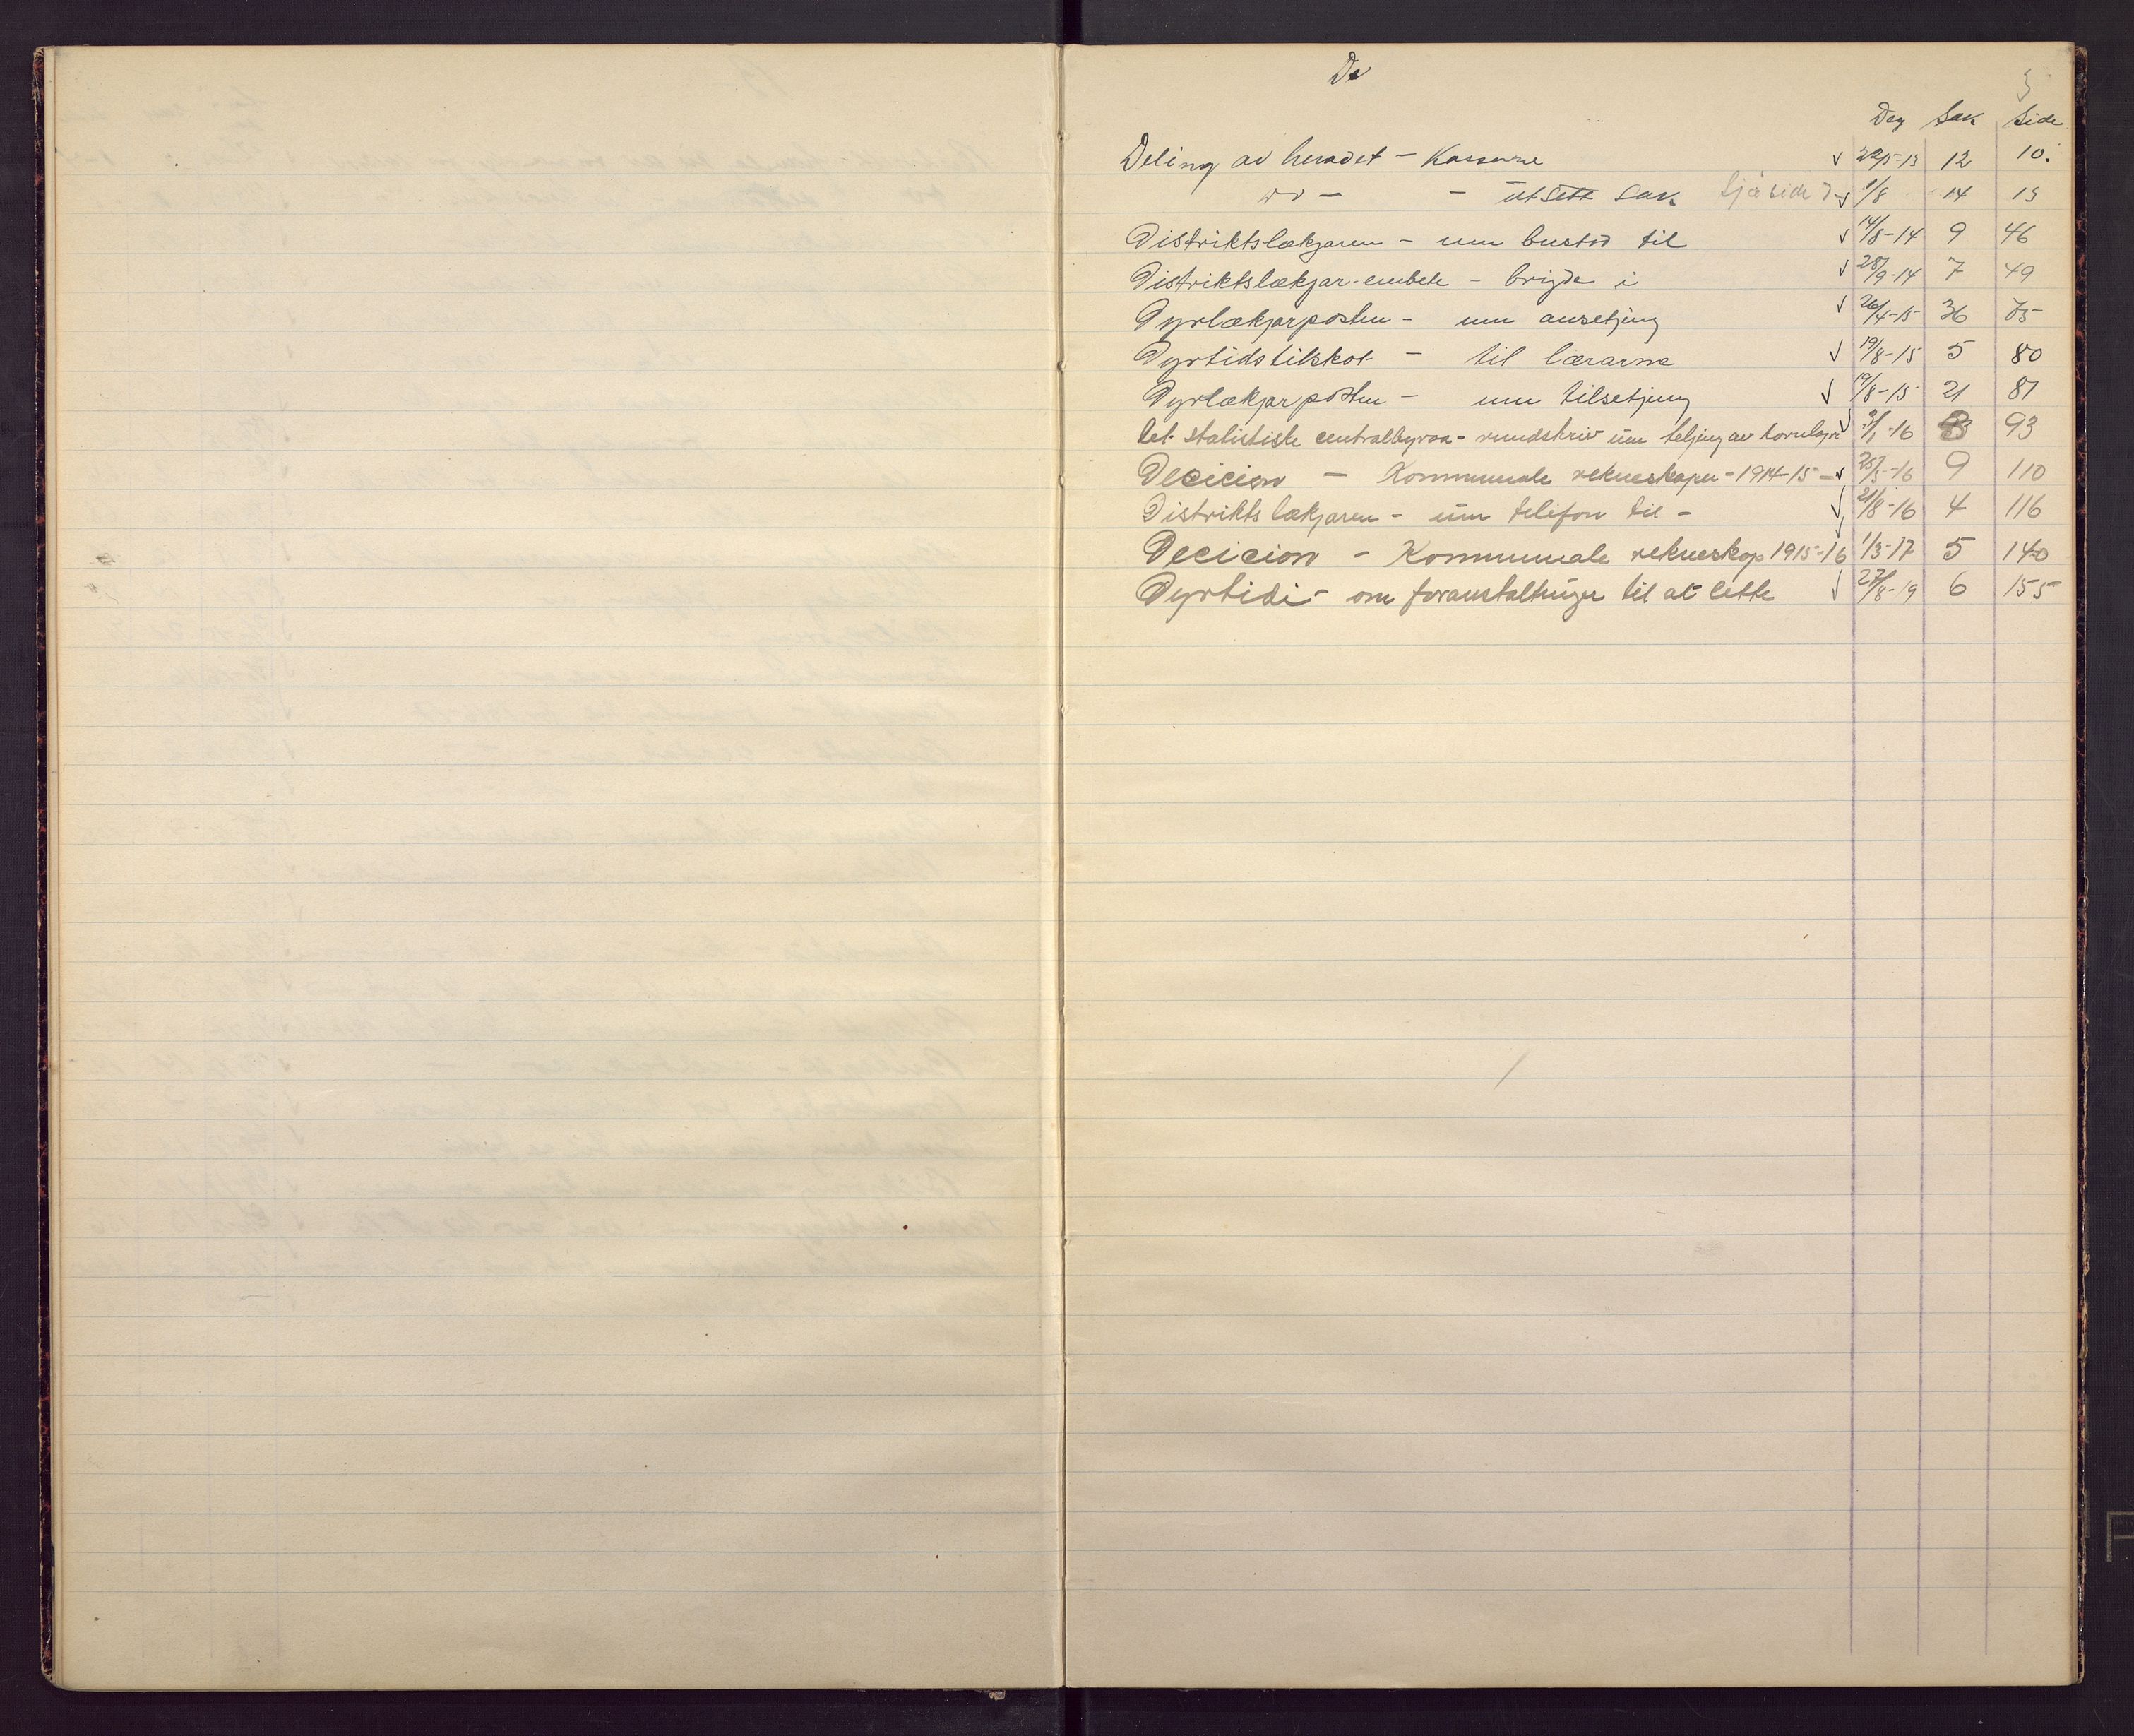 De
3
Dag Sak Side
Deling av heradet - Kassarne √ 22/5-13 12 10.
do - - utsett sak Sjå side √ 1/8 14 13
Distriktslækjaren - um bustad til √ 14/8-14 9 46
Distriktslækjar-embete - brigde i √ 28/9-14 7 49
Dyrlækjarposten - um ansetjing √ 26/4-15 36 75
Dyrtidstilskot - til lærarne √ 19/8-15 5 80
Dyrlækjarposten - um tilsetjing √ 19/8-15 21 81
Det statistiske centralbyraa - rundskriv um teljing av kornlagre √ 3/1-16 93
Decicion - Kommunale rekneskapen - 1914-15 - √ 25/5-16 9 110
Distriktslækjaren - um telifon til - √ 21/8-16 4 116
Decicion - Kommunale rekneskap 1915-16 √ 1/3-17 5 140
Dyrtidi - om foranstaltninger til at lette √ 27/8-19 6 155